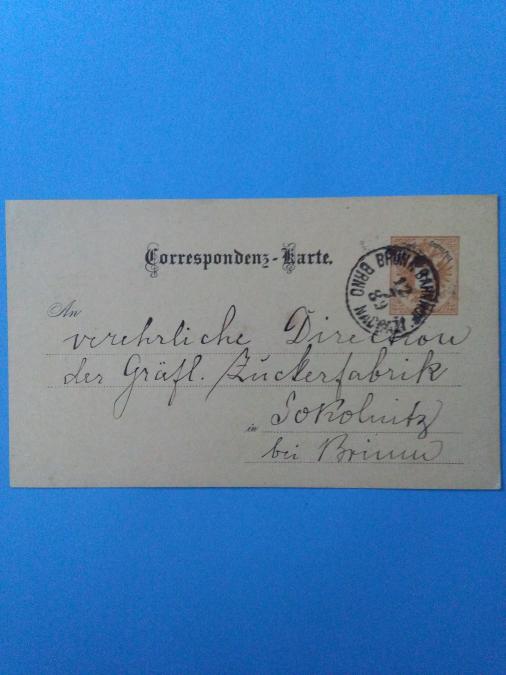 Correspondenz-Karte.
BRÜNN BAHNHOF BRNO NÁDRAŽÍ
12
89
An
verehrliche Direction
der Gräfl. Zuckerfabrik
in Sokolnitz
bei Brünn